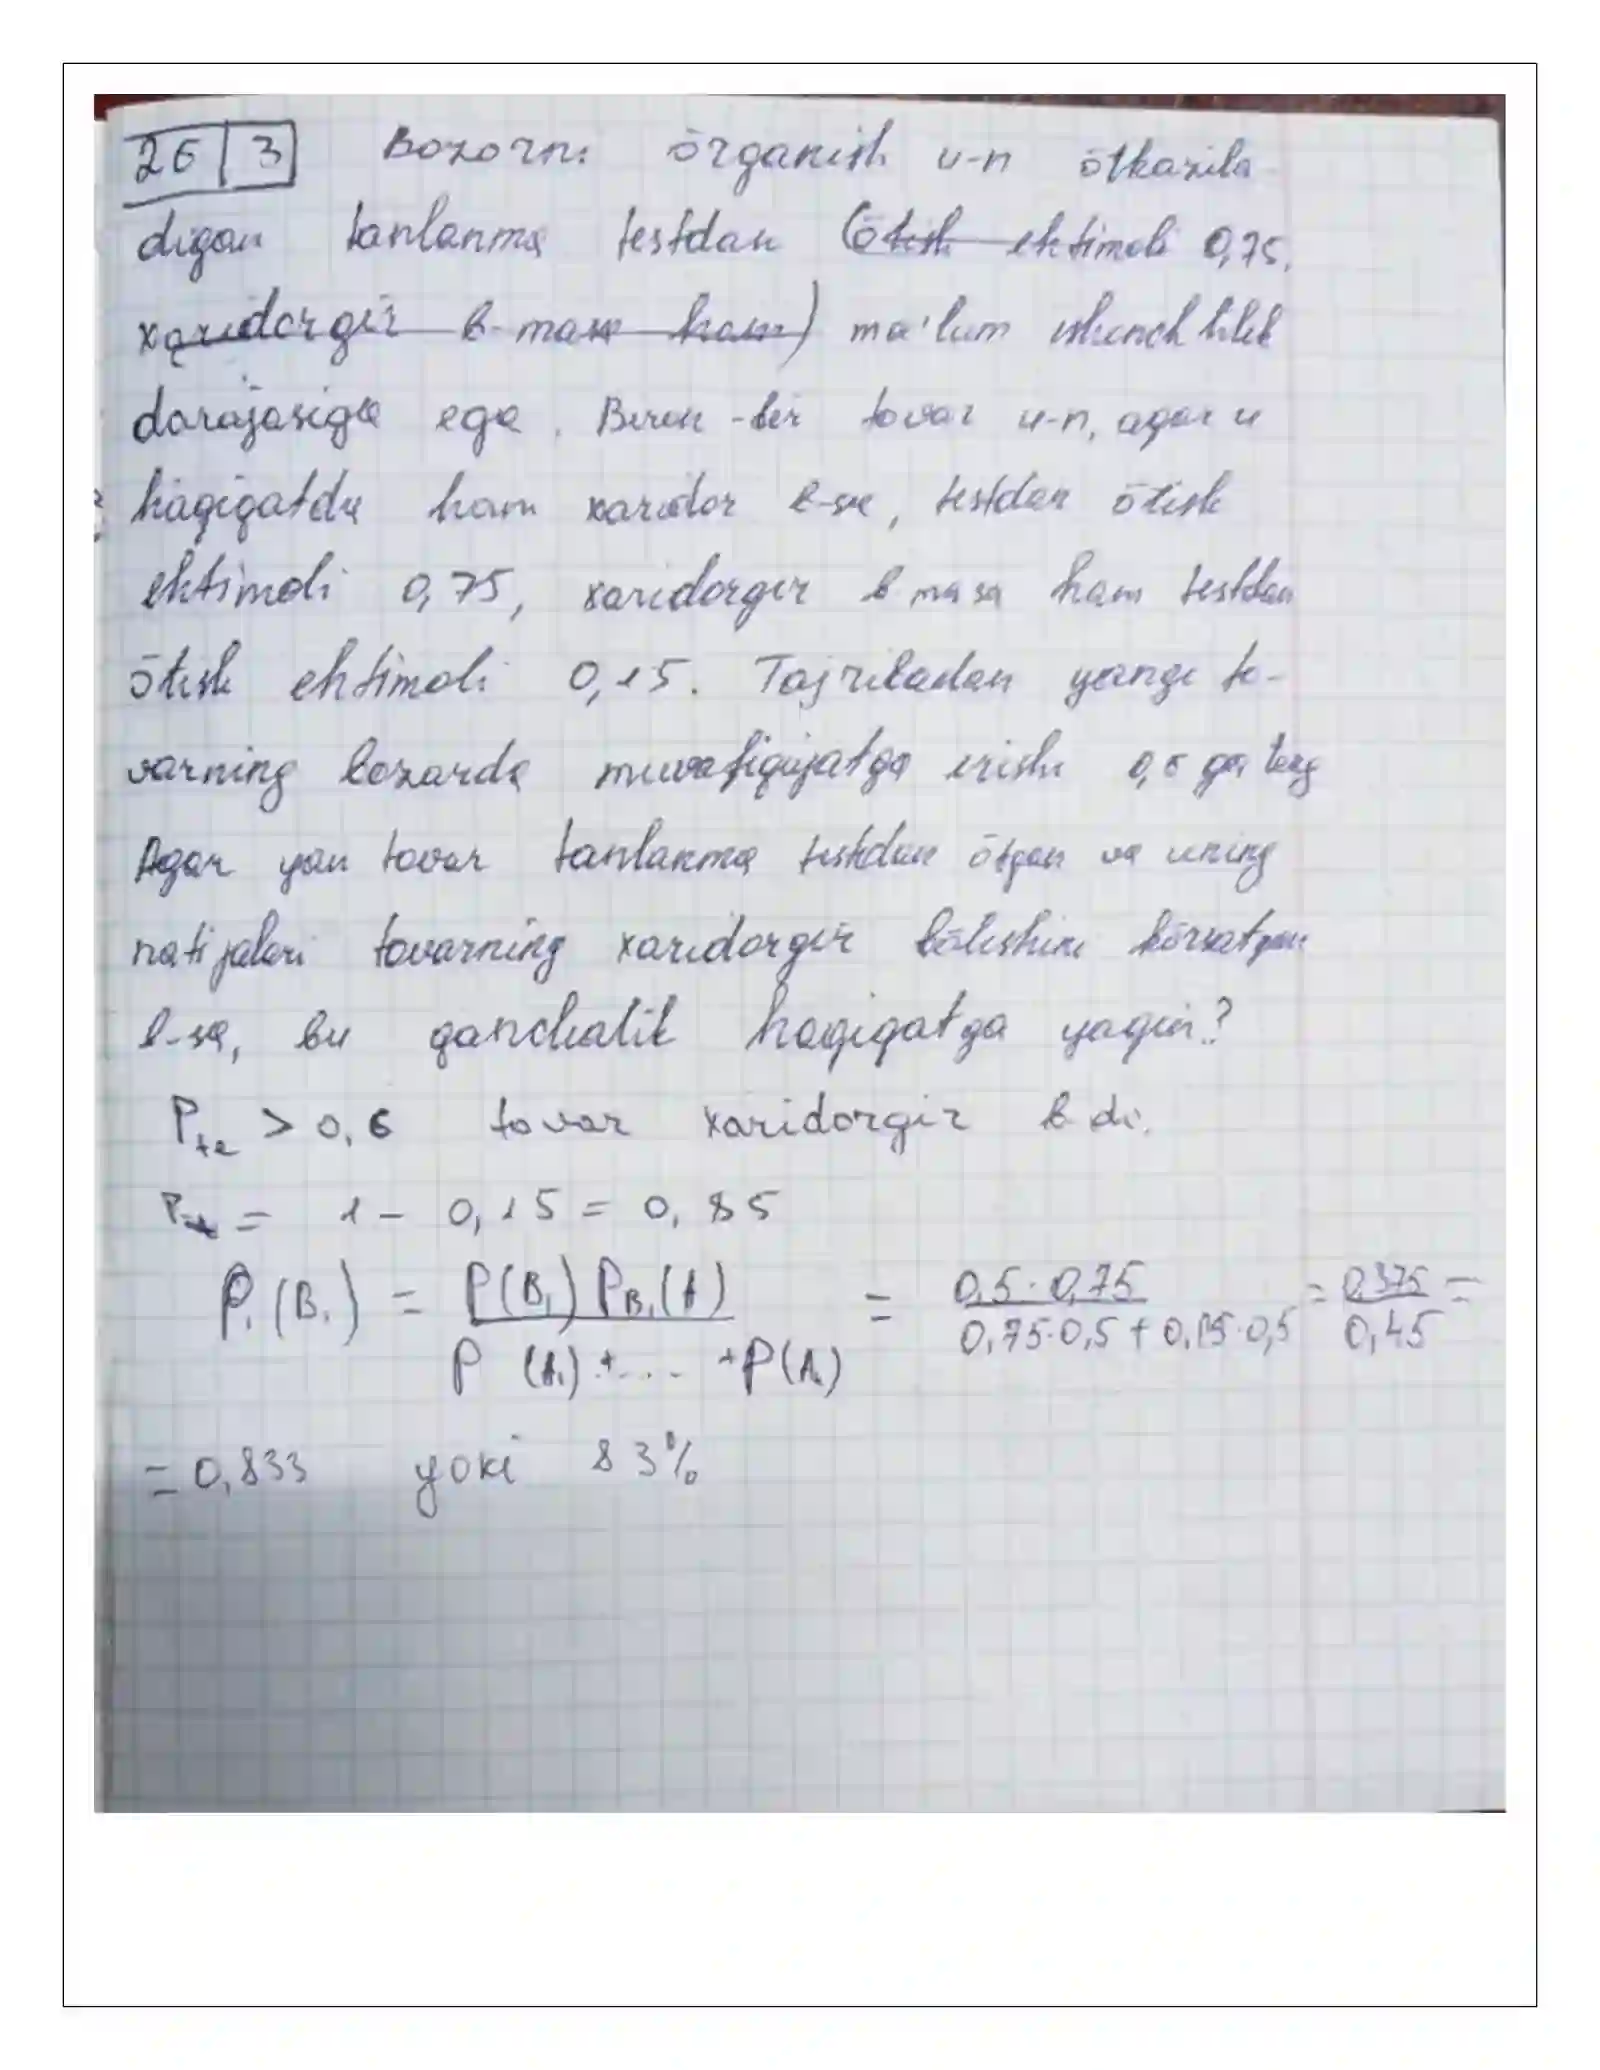 26 | 3 Bozorni ōrganish u-n ōtkazila-
digan tanlanma testdan (ōtish ehtimoli 0,75,
xaridorgir b-masa ham) ma'lum ishonchlilik
darajasiga ega. Biron-bir tovar u-n, agar u
haqiqatda ham xaridor b-sa, testdan ōtish
ehtimoli 0,75, xaridorgir b masa ham testdan
ōtish ehtimoli 0,15. Tajribadan yangi to-
varning bozorda muvafiqiyatga erishi ga teng
Agar yan tovar tanlanma testdan ōtgan va uning
natijalari tovarning xaridorgir bōlishini kōrsatgan
b-sa, bu qanchalik haqiqatga yaqin?
> 0,6 tovar xaridorgir b di.
= 1 - 0,15 = 0,85
P₁(B₁) = P(B₁) P_B₁(A) / P(A₁) + ... + P(A₂) = 0,5 · 0,75 / 0,75·0,5 + 0,15·0,5 = 0,375 / 0,45 =
= 0,833 yoki 83%